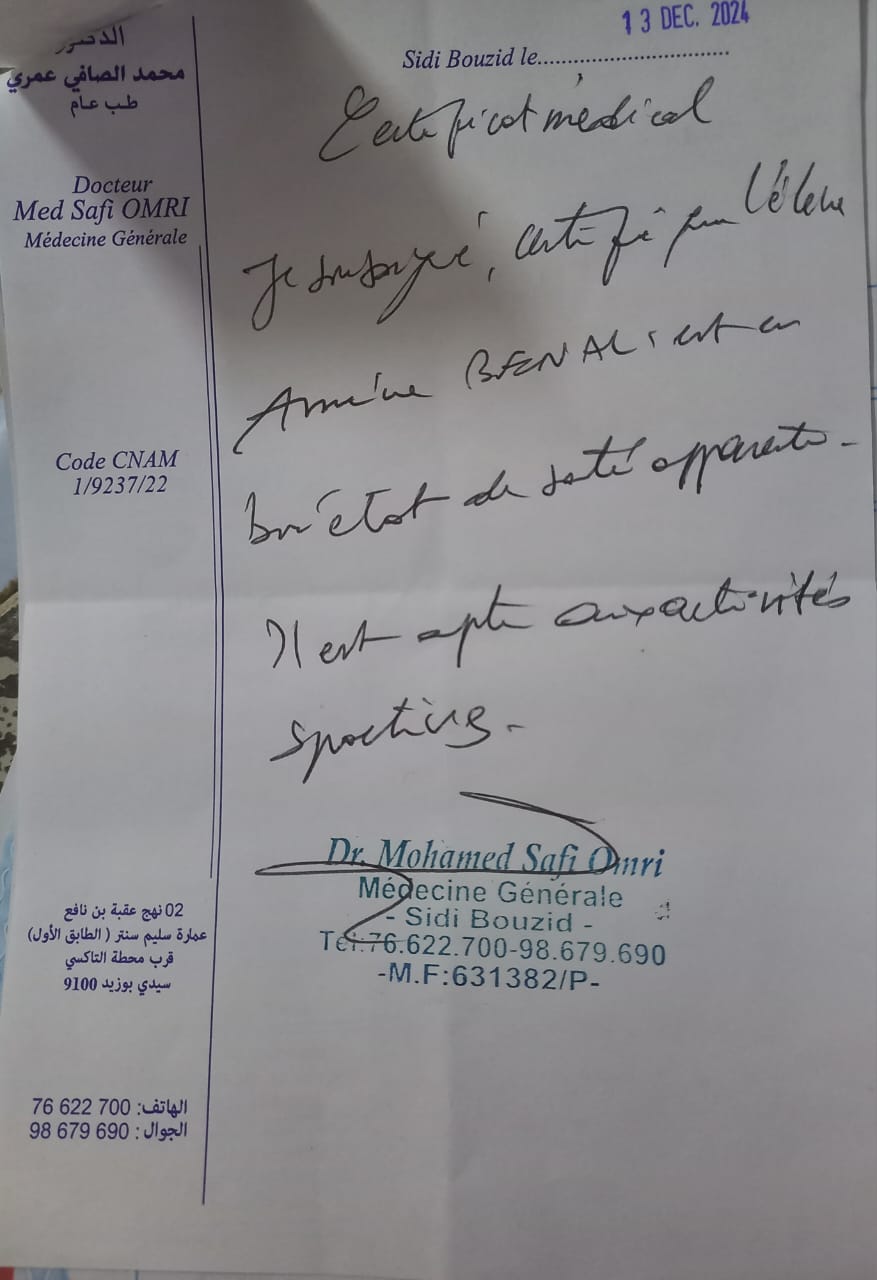 الدكتور
محمد الصافي عمري
طب عام
Docteur
Med Safi OMRI
Médecine Générale
Code CNAM
1/9237/22
02 نهج عقبة بن نافع
عمارة سليم سنتر ( الطابق الأول)
قرب محطة التاكسي
سيدي بوزيد 9100
الهاتف: 700 622 76
الجوال : 690 679 98
13 DEC. 2024
Sidi Bouzid le
Certificat médical
Je soussigné, certifie que l'élève
BENALI est en
bon état de santé apparente -
Il est apte aux activités
sportives -
Dr. Mohamed Safi Omri
Médecine Générale
- Sidi Bouzid -
Tel:76.622.700-98.679.690
-M.F:631382/P-